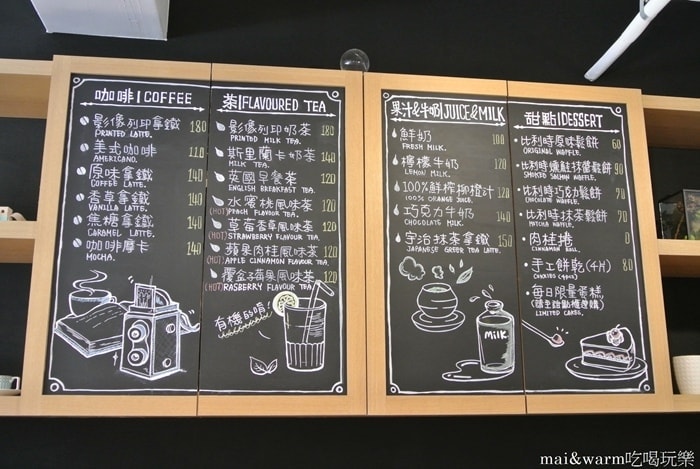 咖啡 | COFFEE
影像列印拿鐵 180
PRINTED LATTE.
美式咖啡 110
AMERICANO.
原味拿鐵 140
COFFEE LATTE.
香草拿鐵 140
VANILLA LATTE.
焦糖拿鐵 140
CARAMEL LATTE.
咖啡摩卡 140
MOCHA.
茶 | FLAVOURED TEA
影像列印奶茶 180
PRINTED MILK TEA.
斯里蘭卡奶茶 140
MILK TEA.
英國早餐茶 120
ENGLISH BREAKFAST TEA.
水蜜桃風味茶 120
(HOT) PEACH FLAVOUR TEA.
草莓香草風味茶 120
(HOT) STRAWBERRY FLAVOUR TEA.
蘋果肉桂風味茶 120
(HOT) APPLE CINNAMON FLAVOUR TEA.
覆盆子蘋果風味茶 120
(HOT) RASBERRY FLAVOUR TEA.
有機的唷!
果汁&牛奶 | JUICE & MILK
鮮奶 100
FRESH MILK.
檸檬牛奶 120
LEMON MILK.
100%鮮榨柳橙汁 120
100% ORANGE JUICE.
巧克力牛奶 140
CHOCOLATE MILK.
宇治抹茶拿鐵 150
JAPANESE GREEN TEA LATTE.
Milk.
甜點 | DESSERT
比利時原味鬆餅 60
ORIGINAL WAFFLE.
比利時燻鮭抹蘭鬆餅 90
SMOKED SALMON WAFFLE.
比利時巧克力鬆餅 70
CHOCOLATE WAFFLE.
比利時抹茶鬆餅 70
MATCHA WAFFLE.
肉桂捲
CINNAMON ROLL.
手工餅乾(4片) 80
COOKIES (4PCS)
每日限量蛋糕
(請至甜點櫃選購)
LIMITED CAKES.
mai&warm吃喝玩樂